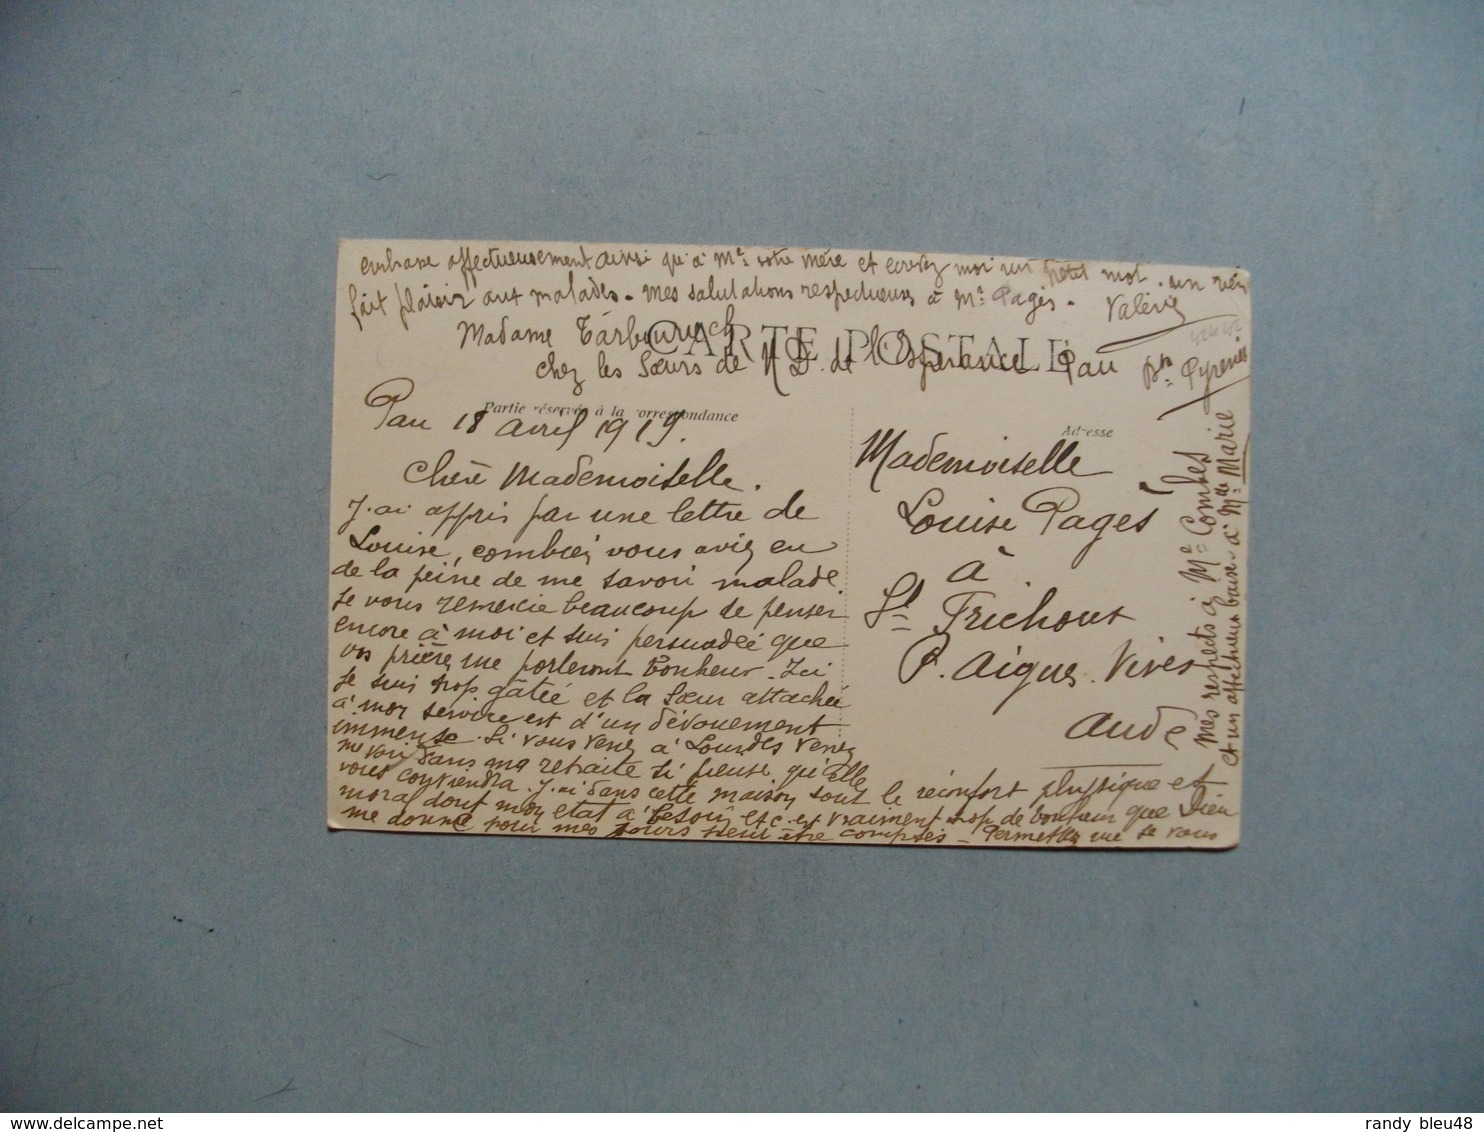 embrasse affectueusement ainsi qu'à Me votre mère et écrivez moi un petit mot. un rien
fait plaisir aux malades. Mes salutations respectueuses à Mr Pagès.
Valérie
Madame Tarbouriech
CARTE POSTALE
chez les Sœurs de N D. de l'Espérance Pau
Bses Pyrenées
Partie réservée à la correspondance
Pau 18 avril 1919.
Chère Mademoiselle.
J'ai appris par une lettre de
Louise, combien vous aviez eu
de la peine de me savoir malade.
Je vous remercie beaucoup de penser
encore à moi et suis persuadée que
vos prières me porteront bonheur. Ici
je suis trop gâtée et la Sœur attachée
à mon service est d'un dévouement
immense. Si vous venez à Lourdes venez
me voir dans ma retraite si pieuse, qu'elle
vous conviendra. J'ai dans cette maison tout le réconfort physique et
moral dont mon état a besoin, et c'est vraiment trop de bonheur que Dieu
me donne pour mes jours peut être comptés - Permettez que je vous
Adresse
Mademoiselle
Louise Pagès
à
St Frichoux
P. Aigues-Vives
Aude
Mes respects à Me Combes
et un affectueux baiser à Mlle Marie
randy bleu48